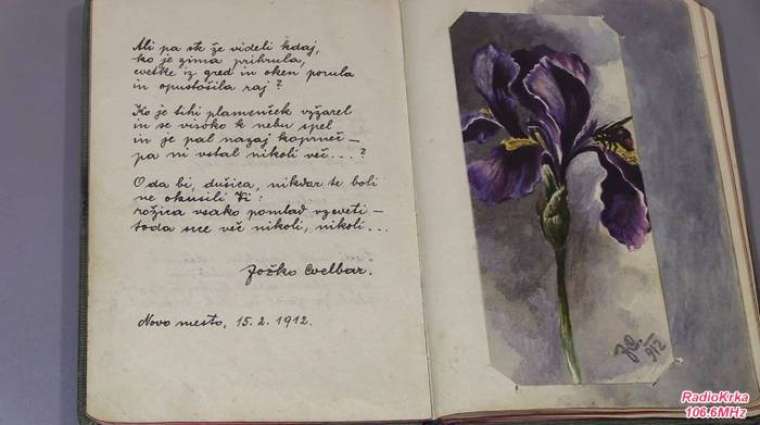 Ali pa ste že videli kdaj,
ko je zima prihrula,
cvetke iz gred in oken porula
in opustošila raj?
Ko je tihi plamenček vzžarel
in se visoko k nebu spel
in je pal nazaj koprneč –
pa ni vstal nikoli več...?
O da bi, dušica, nikdar te boli
ne okusili Ti:
rožica vsako pomlad vzcveti –
toda me več nikoli, nikoli...
Joško Cvelbar.
Novo mesto, 15. 2. 1912.
JC.
912
RadioKrka
106.6MHz